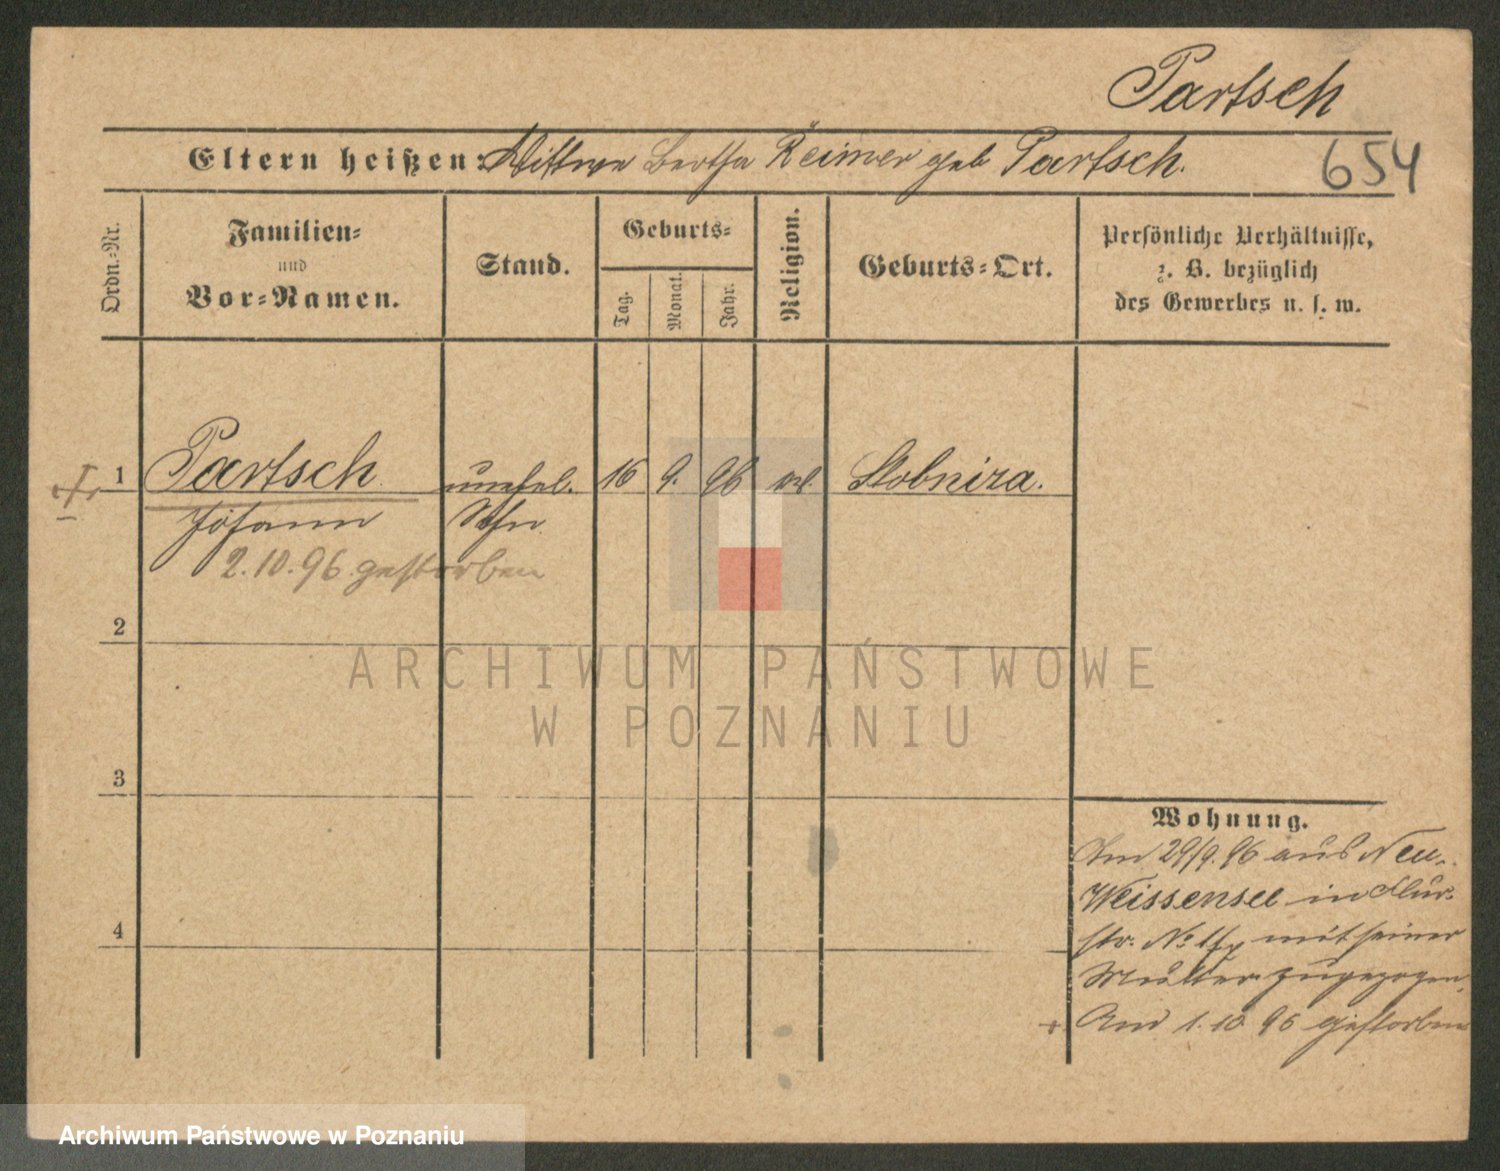 Partsch
Eltern heißen: Wittwe Bertha Reimer geb Partsch.
654
Ordn.=Nr.
Familien=
und
Vor=Namen.
Stand.
Geburts=
Tag.
Monat.
Jahr.
Religion.
Geburts=Ort.
Persönliche Verhältnisse,
z. B. bezüglich
des Gewerbes u. s. w.
1 Partsch unehel. 16 9. 96 Stobnica.
Johann Sohn
2.10.96 gestorben
2
3
4
Wohnung.
Am 29/9. 96 aus Neu-
Weissensee in
str. No mit seiner
Mutter zugezogen.
+ Am 1.10 96 gestorben
ARCHIWUM PAŃSTWOWE
W POZNANIU
Archiwum Państwowe w Poznaniu